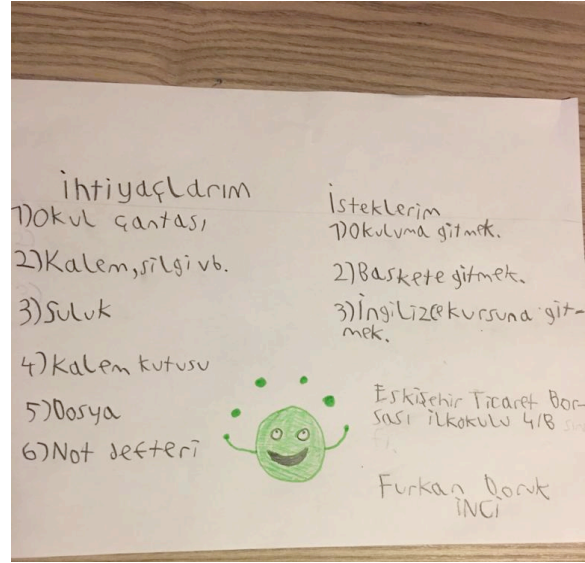 ihtiyaçlarım
1)Okul çantası
2)Kalem,silgi vb.
3)Suluk
4)Kalem kutusu
5)Dosya
6)Not defteri
İsteklerim
1)Okuluma gitmek.
2)Baskete gitmek.
3)İngilizce kursuna git-
mek.
Eskişehir Ticaret Bor-
sası ilkokulu 4/B
Furkan Doruk
İNCİ